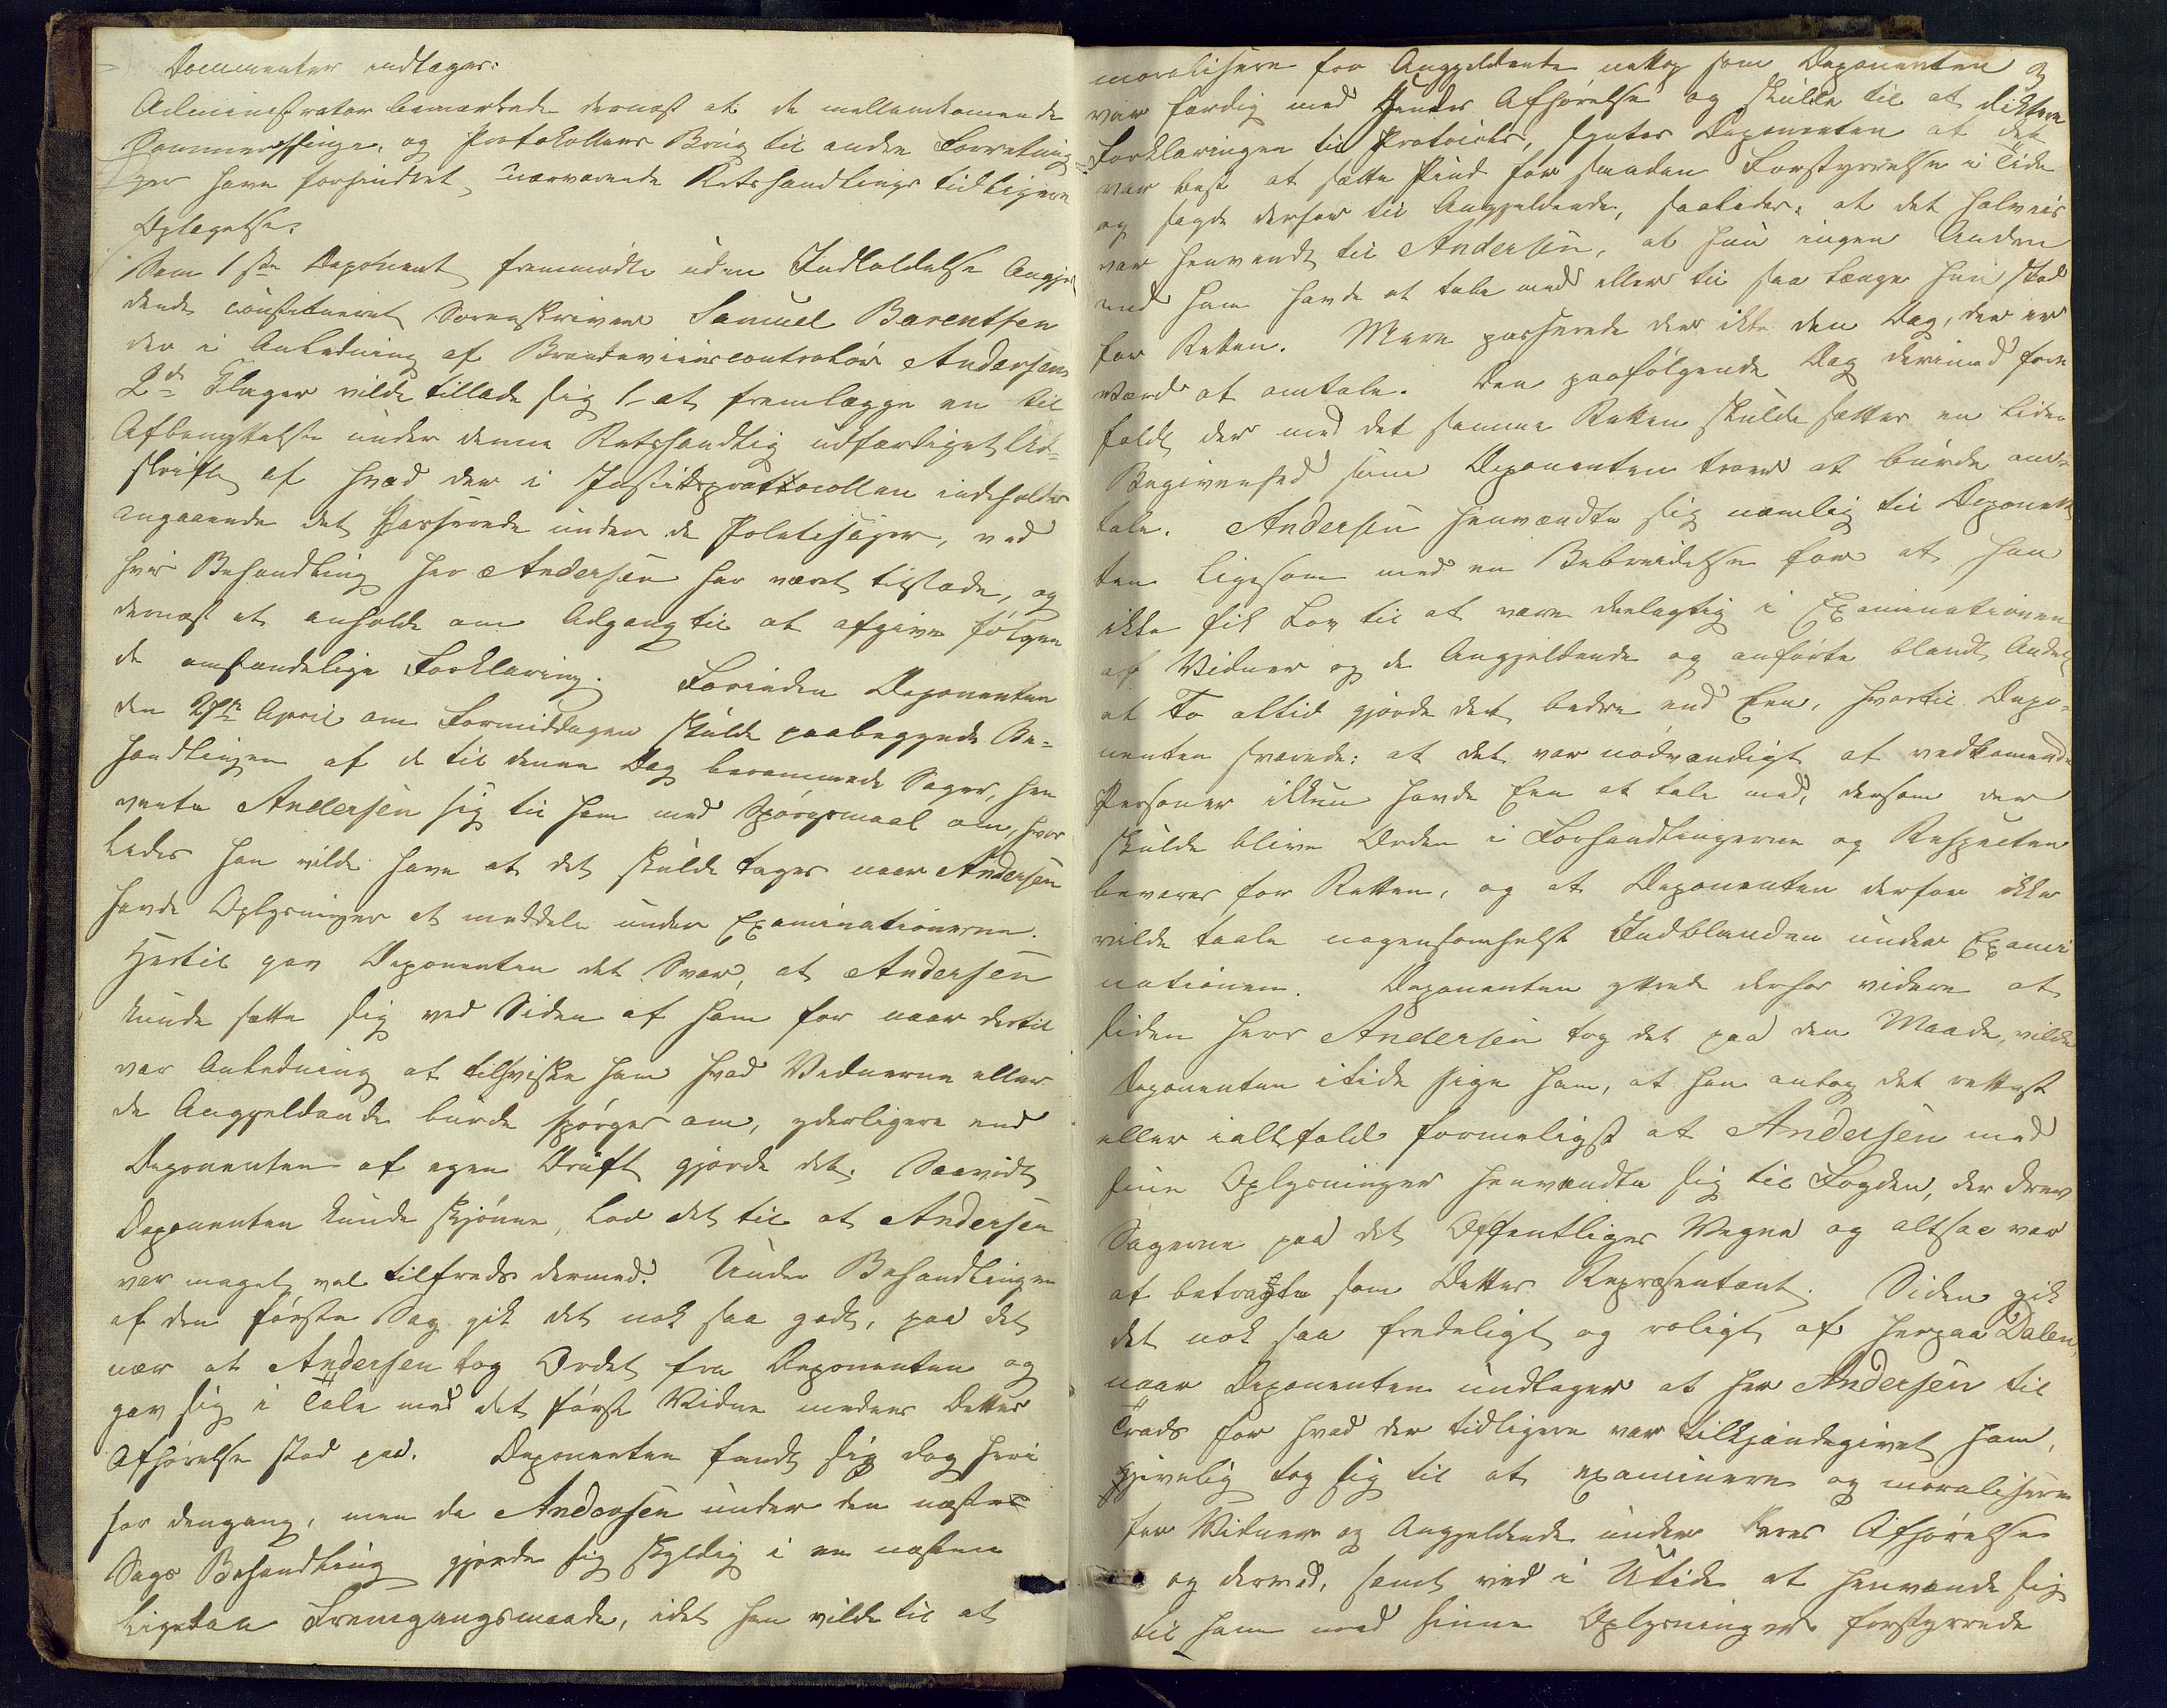 Documenter indtages:
Administrator bemærkede dernæst at de mellemkomende
Sommerthinge, og Protokollens Brug til andre Forretnin-
ger have forhindret nærværende Retshandlings tidligere
Optagelse.
Som 1ste Deponent fremmødte uden Indkaldelse Angjel
dende constitueret Sorenskriver Samuel Barentsen
der i Anledning af Brændeviinscontrolør Andersens
2de Klager vilde tillade sig 1, at fremlægge en til
Afbenyttelse under denne Retshandlig udfærdiget Ud-
skrift af hvad der i Justitsprottocollen indeholdes
angaaende det Passerede under de Politisager, ved
hvis Behandling Her Andersen har været tilstæde, og
dernæst at anholde om Adgang til at afgive følgen
de omstændelige Forklaring. Forinden Deponenten
den 27de April om Formiddagen skulde paabegynde Be-
handlingen af de til denne Dag berammede Sager, hen
vente Andersen sig til ham med Spørgsmaal om, hvor
ledes han vilde have at det skulde tages naar Andersen
havde Oplysninger at meddele under Examinationerne.
Hertil gav Deponenten det Svar, at Andersen
kunde sætte sig ved Siden af ham for naar dertil
var Anledning at tilhviske ham hvad Vidnerne eller
de Angjeldende burde spørges om, yderligere end
Deponenten af egen Drift gjorde det. Saavidt
Deponenten kunde skjønne, lod det til at Andersen
var meget vel tilfreds dermed. Under Behandlingen
af den første Sag gik det nok saa godt, paa det
nær at Andersen tog Ordet fra Deponenten og
gav sig i Tale med det første Vidne medens Dettes
Afhørelse stod paa. Deponenten fandt sig dog heri
for dengang, men da Andersen under den næste
Sags Behandling gjorde sig skyldig i en næsten
ligedan Fremgangsmaade, idet han vilde til at
moralisere for Angjeldende netop som Deponenten
var færdig med Hendes Afhørelse og skulde til at diktere
Forklaringen til Protocols, syntes Deponenten at det
var best at sætte Pind for saadan Forstyrrelse i Tide
og sagde derfor til Angjeldende, saaledes: at det halveis
var henvendt til Andersen, at hun ingen Anden
end ham havde at tale med eller til saa længe hun stod
for Retten. Mere passerede der ikke den Dag, der er
værd at omtale. Den paafølgende Dag derimod fore
faldt der med det samme Retten skulde sættes en liden
Begivenhed som Deponenten troer at burde om-
tale. Andersen henvendte sig nemlig til Deponen
ten ligesom med en Bebreidelse for at han
ikke fik Lov til at være deelagtig i Examinationen
af Vidner og de Angjeldende og anførte blandt Andet
at To altid gjorde det bedre end Een, hvortil Depo-
nenten svarede: at det var nødvendigt at vedkomende
Personer ikkun havde Een at tale med, dersom der
skulde blive Orden i Forhandlingerne og Respecten
bevares for Retten, og at Deponenten derfor ikke
vilde taale nogensomhelst Indblanden under Exami
nationen. Deponenten yttrede derhos videre at
siden Herr Andersen tog det paa den Maade, vilde
Deponenten itide sige ham, at han antog det rettest
eller ialtfald formeligst at Andersen med
sine Oplysninger henvendte sig til Fogden, der drev
Sagerne paa det Offentliges Vegne og altsaa var
at betragte som Dettes Repræsentant. Siden gik
det nok saa fredeligt og roligt af herpaa Dalen,
naar Deponenten undtager at Her Andersen til
Trods for hvad der tidligere var tilkjendegivet ham,
jevnlig tog sig til at examinere og moralisere
for Vidner og Angjeldende under deres Afhørelse
og derved, samt ved i Utide at henvende sig
til ham med sinne Oplysninger forstyrrede